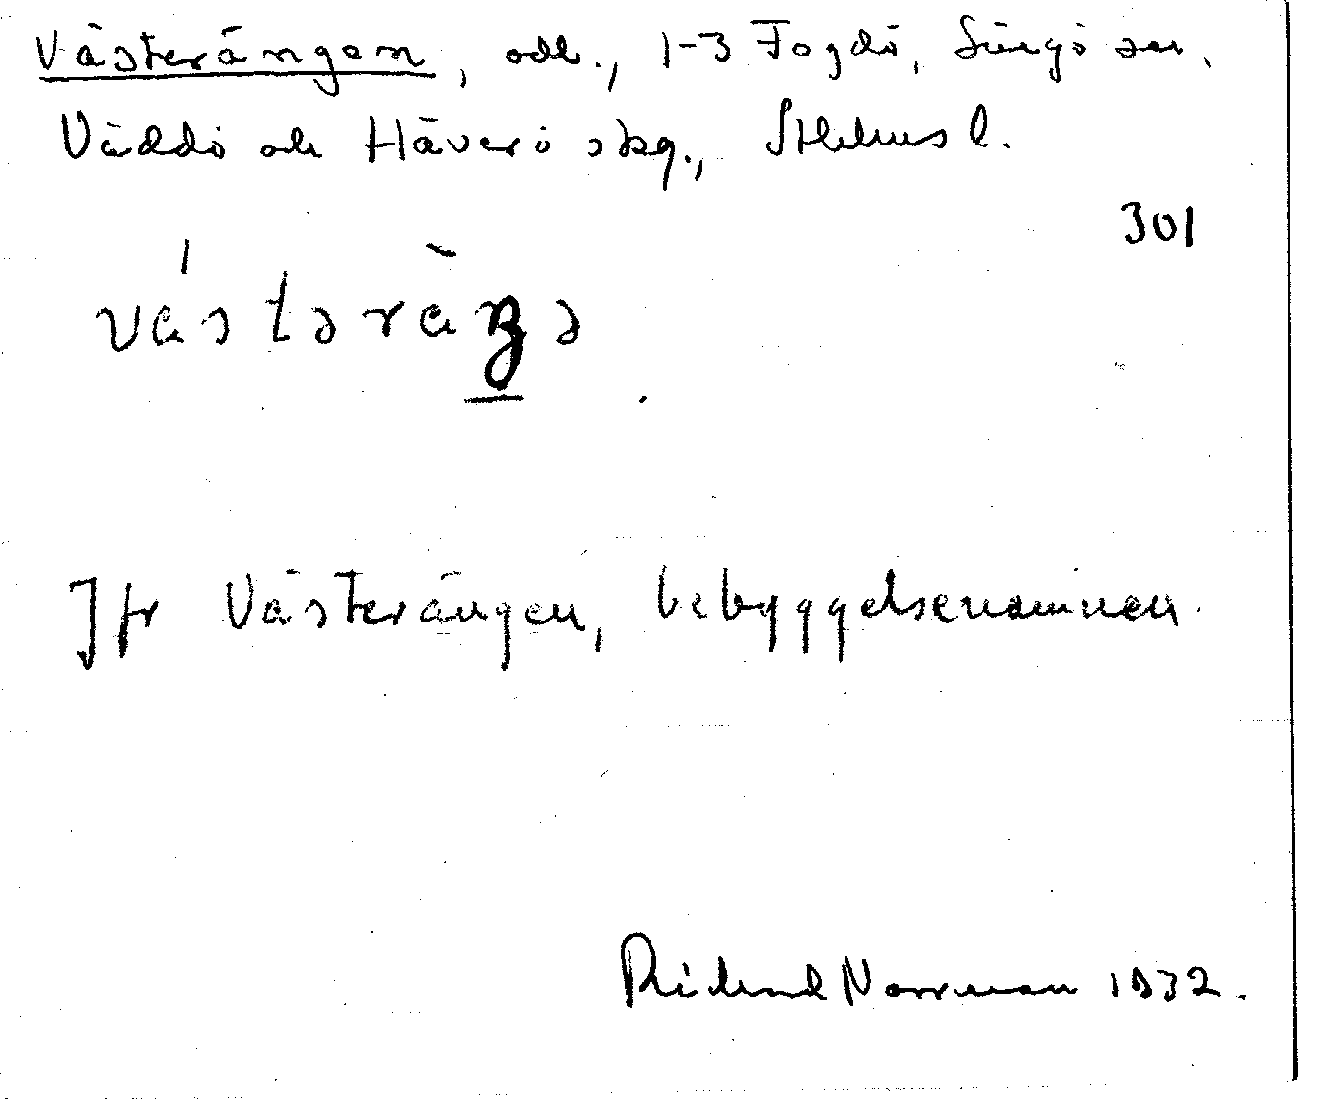 Västerängen, odl., 1-3 Fogdö, Singö sn.
Väddö och Häverö skg., Sthlms l.
301
västəräŋə
Jfr Västerängen, bebyggelsenamnen.
Richard Norrman 1932.